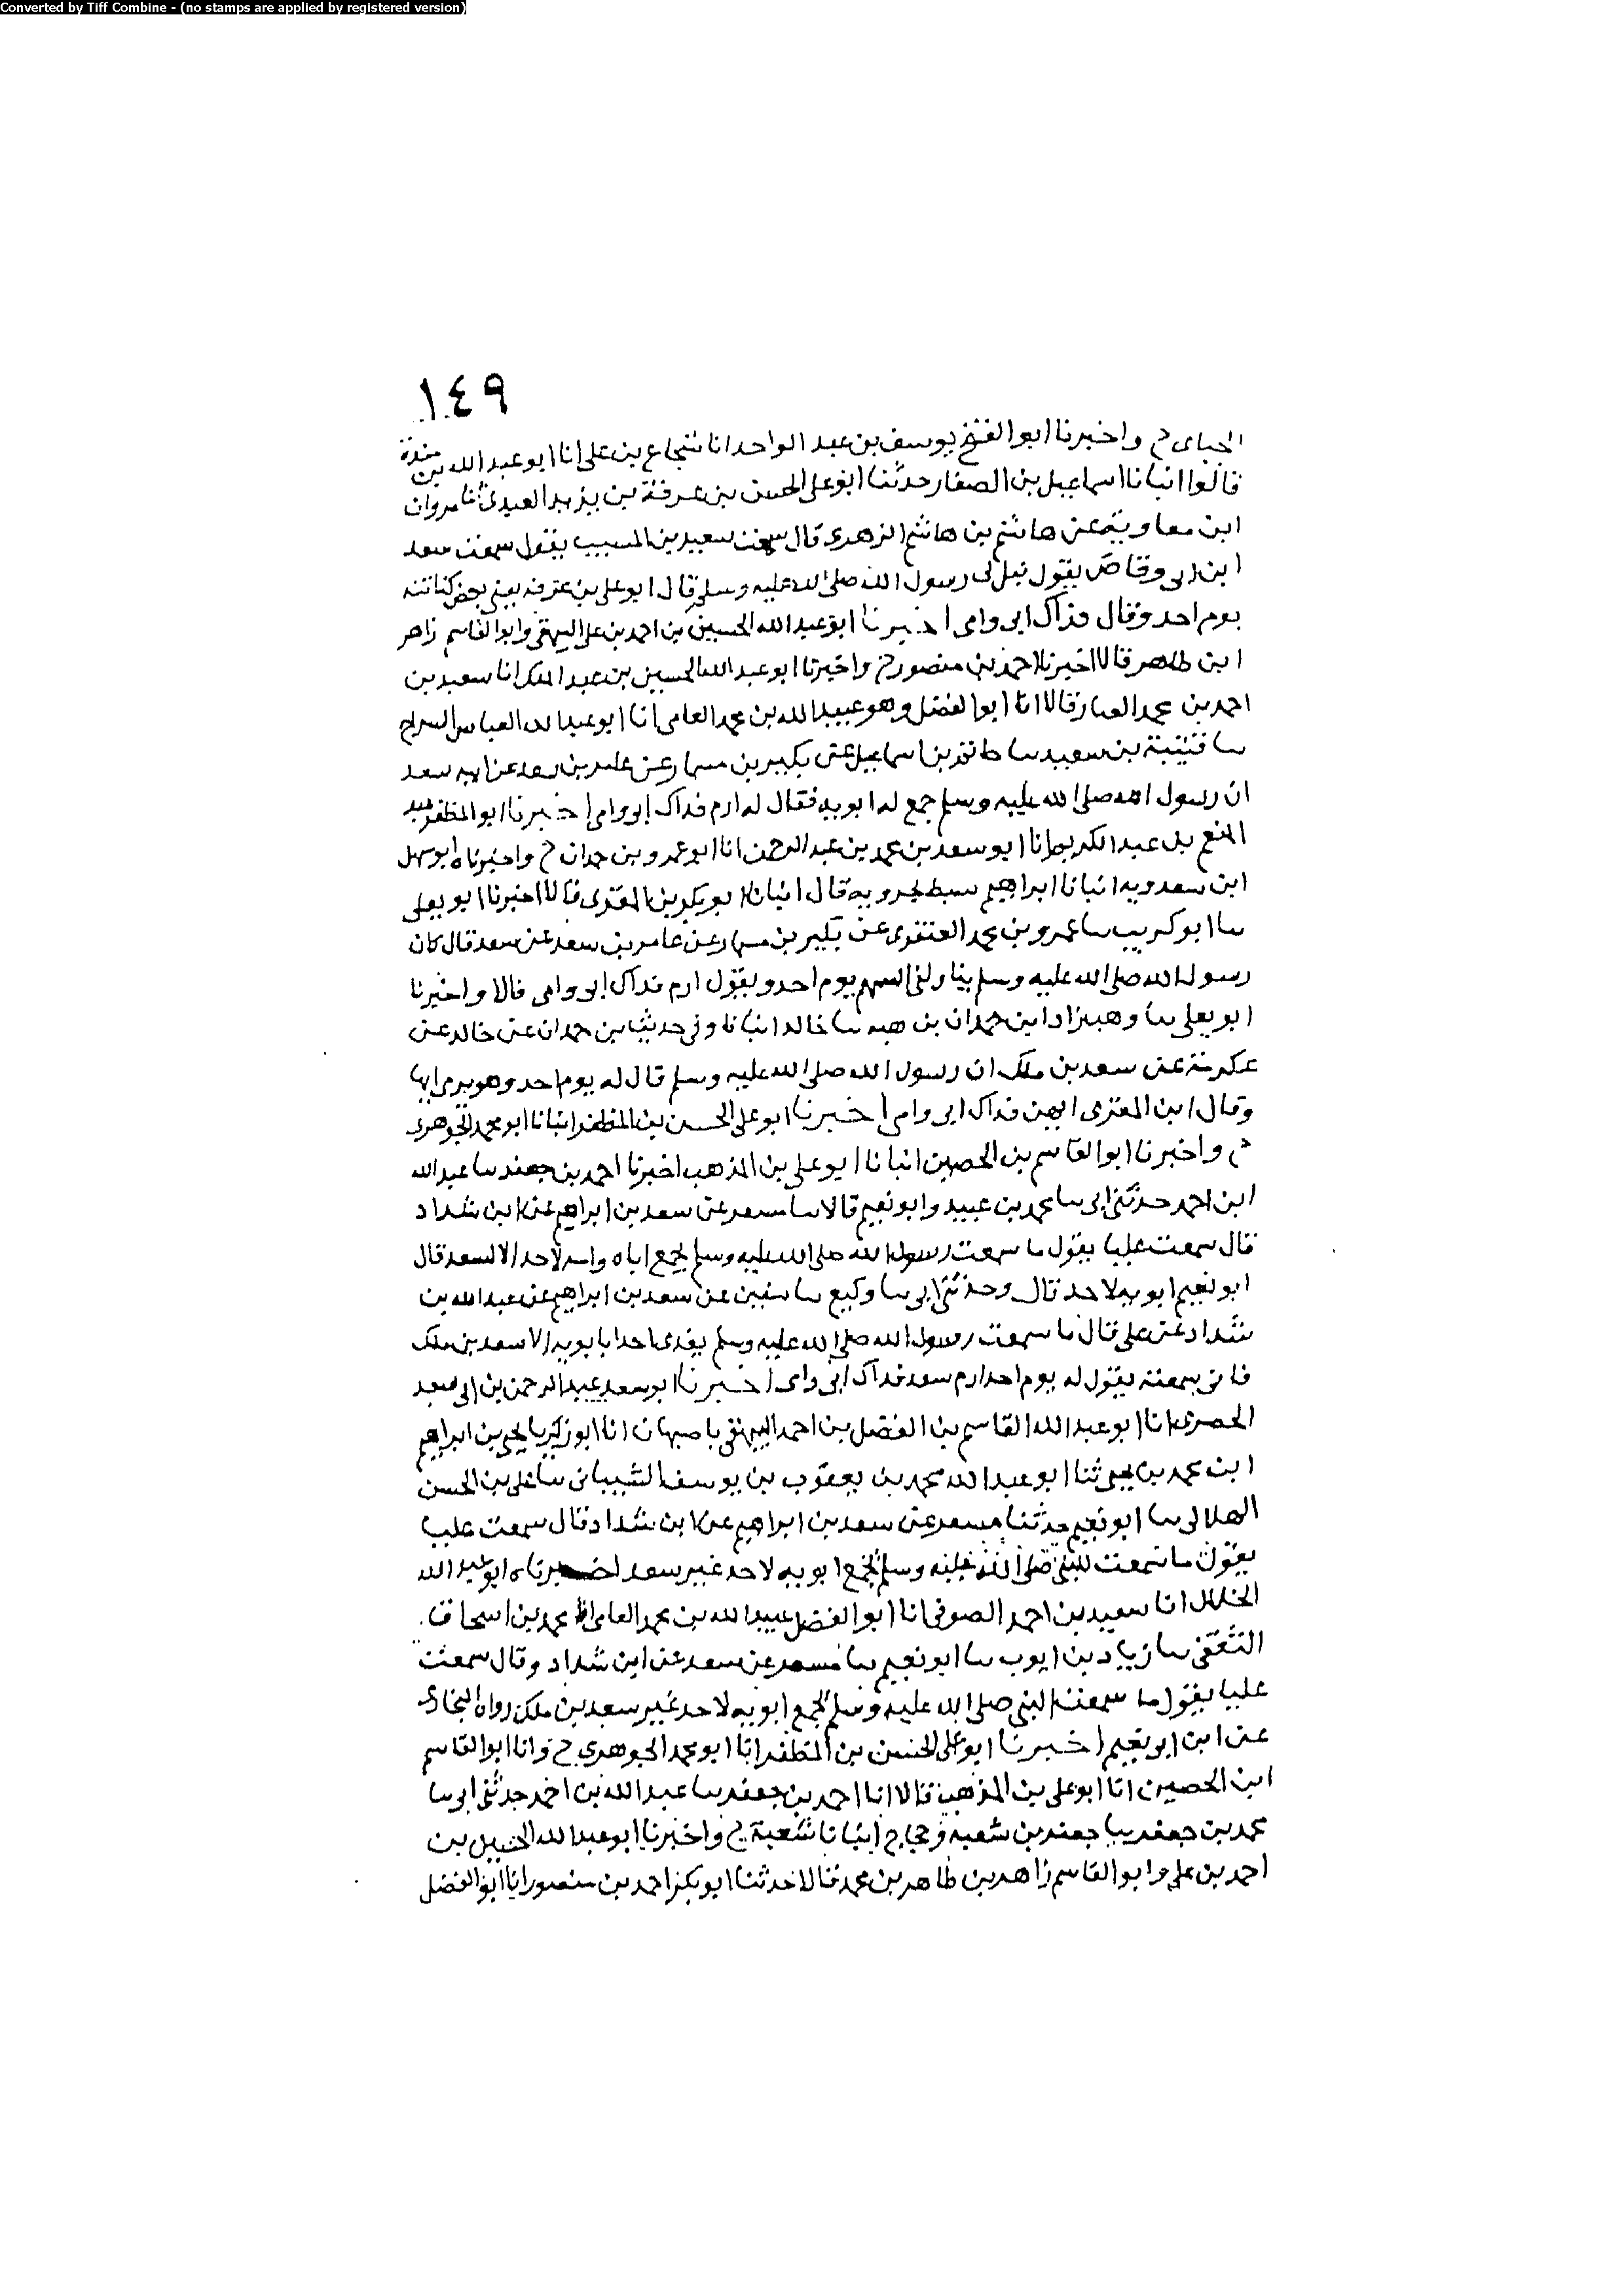 Converted by Tiff Combine - (no stamps are applied by registered version)
١٤٩
الجباى ح واخبرنا ابو الفتح يوسف بن عبد الواحد انا شجاع بن على انا ابو عبد الله بن مندة
قالوا انبانا اسماعيل بن الصفار حدثنا ابو على الحسن بن عرفة بن يزيد العبدى نا مروان
ابن معاوية عن هاشم بن هاشم الزهرى قال سمعت سعيد بن المسيب يقول سمعت سعد
ابن ابى وقاص يقول نثل لى رسول الله صلى الله عليه وسلم قال ابو على بن عرفه يعنى نفض كنانته
يوم احد وقال فداك ابى وامى اخبرنا ابو عبد الله الحسين بن احمد بن على البيهقى وابو القاسم زاهر
ابن طاهر قالا اخبرنا احمد بن منصور ح واخبرنا ابو عبد الله الحسين بن عبد الملك انا سعيد بن
احمد بن محمد العيار قالا انا ابو الفضل وهو عبيد الله بن محمد العامى انا ابو عبد الله العباس السراج
سا قتيبة بن سعيد سا حاتم بن اسماعيل عن بكير بن مسمار عن عامر بن سعد عن ابيه سعد
ان رسول الله صلى الله عليه وسلم جمع له ابويه فقال له ارم فداك ابى وامى اخبرنا ابو المظفر عبد
المنعم بن عبد الكريم انا ابو سعد بن محمد بن عبد الرحمن انا ابو عمرو بن حمدان ح واخبرناه ابو سهل
ابن سعدويه انبانا ابراهيم سبط بحرويه قال انبانا ابو بكر بن المقرى قالا اخبرنا ابو يعلى
سا ابو كريب سا عمرو بن محمد العنقزى عن بكير بن مسمار عن عامر بن سعد عن سعد قال كان
رسول الله صلى الله عليه وسلم يناولنى السهم يوم احد ويقول ارم فداك ابى وامى قالا واخبرنا
ابو يعلى سا وهب زاد ابن حمدان بن هبه سا خالد انبانا وفى حديث بن حمدان عن خالد عن
عكرمة عن سعد بن ملك ان رسول الله صلى الله عليه وسلم قال له يوم احد وهو يرمى ايها
وقال ابن المقرى ايهن فداك ابى وامى اخبرنا ابو على الحسن بن المظفر انبانا ابو محمد الجوهرى
ح واخبرنا ابو القاسم بن الحصين انبانا ابو على بن المذهب اخبرنا احمد بن جعفر سا عبد الله
ابن احمد حدثنى ابى سا محمد بن عبيد وابو نعيم قالا سا مسعر عن سعد بن ابراهيم عن ابن شداد
قال سمعت عليا يقول ما سمعت رسول الله صلى الله عليه وسلم يجمع اباه وامه لاحد الا لسعد قال
ابو نعيم ابويه لاحد قال وحدثنى ابى سا وكيع سا سفين عن سعد بن ابراهيم عن عبد الله بن
شداد عن على قال ما سمعت رسول الله صلى الله عليه وسلم يفدى احدا بابويه الا سعد بن ملك
فانى سمعته يقول له يوم احد ارم سعد فداك ابى وامى اخبرنا ابو سعد عبد الرحمن بن ابى سعد
الحصرى انا ابو عبد الله القاسم بن الفضل بن احمد البيهقى باصبهان انا ابو زكريا يحيى بن ابراهيم
ابن محمد بن يحيى ثنا ابو عبد الله محمد بن يعقوب بن يوسف الشيبانى سا على بن الحسن
الهلالى سا ابو نعيم حدثنا مسعر عن سعد بن ابراهيم عن ابن شداد قال سمعت عليا
يقول ما سمعت النبى صلى الله عليه وسلم يجمع ابويه لاحد غير سعد اخبرناه ابو عبد الله
الخلال انا سعيد بن احمد الصوفى انا ابو الفضل عبيد الله بن محمد العامى انا محمد بن اسحاق
الثقفى سا زياد بن ايوب سا ابو نعيم سا مسعر عن سعد عن ابن شداد وقال سمعت
عليا يقول ما سمعت النبى صلى الله عليه وسلم يجمع ابويه لاحد غير سعد بن ملك رواه البخارى
عن ابن ابو نعيم اخبرنا ابو على الحسن بن المظفر انا ابو محمد الجوهري ح وانا ابو القاسم
ابن الحصين انا ابو على بن المذهب قالا انا احمد بن جعفر سا عبد الله بن احمد حدثنى ابى سا
محمد بن جعفر سا جعفر بن شعبه وحجاج انبانا شعبة ح واخبرنا ابو عبد الله الحسين بن
احمد بن على وابو القاسم زاهر بن طاهر بن محمد قالا حدثنا ابو بكر احمد بن منصور انا ابو الفضل